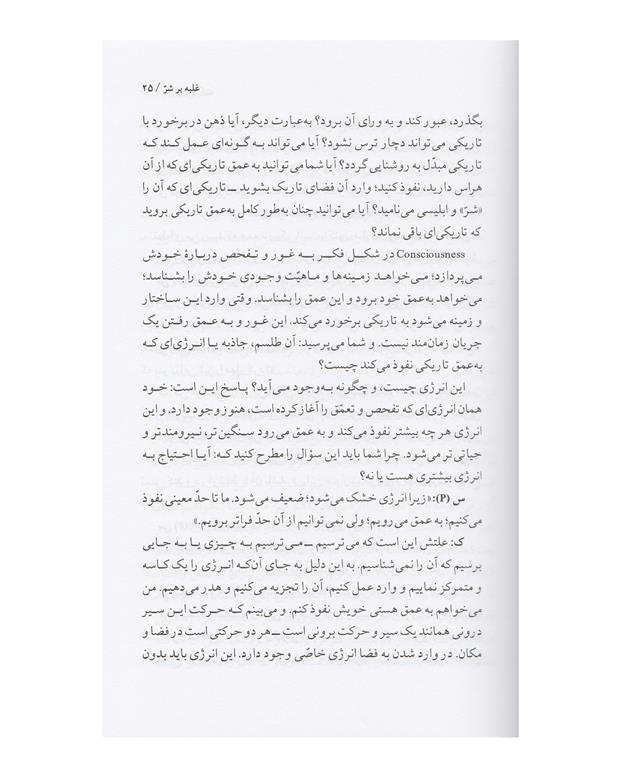 غلبه بر شرّ / ۲۵
بگذرد، عبور کند و به ورای آن برود؟ به‌عبارت دیگر، آیا ذهن در برخورد با
تاریکی می‌تواند دچار ترس نشود؟ آیا می‌تواند به گونه‌ای عمل کند که
تاریکی مبدّل به روشنایی گردد؟ آیا شما می‌توانید به عمق تاریکی‌ای که از آن
هراس دارید، نفوذ کنید؛ وارد آن فضای تاریک بشوید ــ تاریکی‌ای که آن را
«شرّ» و ابلیسی می‌نامید؟ آیا می‌توانید چنان به‌طور کامل به‌عمق تاریکی بروید
که تاریکی‌ای باقی نماند؟
Consciousness در شکل فکر به غور و تفحص دربارهٔ خودش
می‌پردازد؛ می‌خواهد زمینه‌ها و ماهیّت وجودی خودش را بشناسد؛
می‌خواهد به‌عمق خود برود و این عمق را بشناسد. وقتی وارد این ساختار
و زمینه می‌شود به تاریکی برخورد می‌کند. این غور و به عمق رفتن یک
جریان زمان‌مند نیست. و شما می‌پرسید: آن طلسم، جاذبه یا انرژی‌ای که
به‌عمق تاریکی نفوذ می‌کند چیست؟
این انرژی چیست، و چگونه به‌وجود می‌آید؟ پاسخ این است: خود
همان انرژی‌ای که تفحص و تعمّق را آغاز کرده است، هنوز وجود دارد. و این
انرژی هر چه بیشتر نفوذ می‌کند و به عمق می‌رود سنگین‌تر، نیرومندتر و
حیاتی‌تر می‌شود. چرا شما باید این سؤال را مطرح کنید که: آیا احتیاج به
انرژی بیشتری هست یا نه؟
س (P): «زیرا انرژی خشک می‌شود؛ ضعیف می‌شود. ما تا حدّ معینی نفوذ
می‌کنیم؛ به عمق می‌رویم؛ ولی نمی‌توانیم از آن حدّ فراتر برویم.»
ک: علتش این است که می‌ترسیم ــ می‌ترسیم به چیزی یا به جایی
برسیم که آن را نمی‌شناسیم. به این دلیل به جای آن‌که انرژی را یک کاسه
و متمرکز نماییم و وارد عمل کنیم، آن را تجزیه می‌کنیم و هدر می‌دهیم. من
می‌خواهم به عمق هستی خویش نفوذ کنم. و می‌بینم که حرکت این سیر
درونی همانند یک سیر و حرکت برونی است ــ هر دو حرکتی است در فضا و
مکان. در وارد شدن به فضا انرژی خاصّی وجود دارد. این انرژی باید بدون